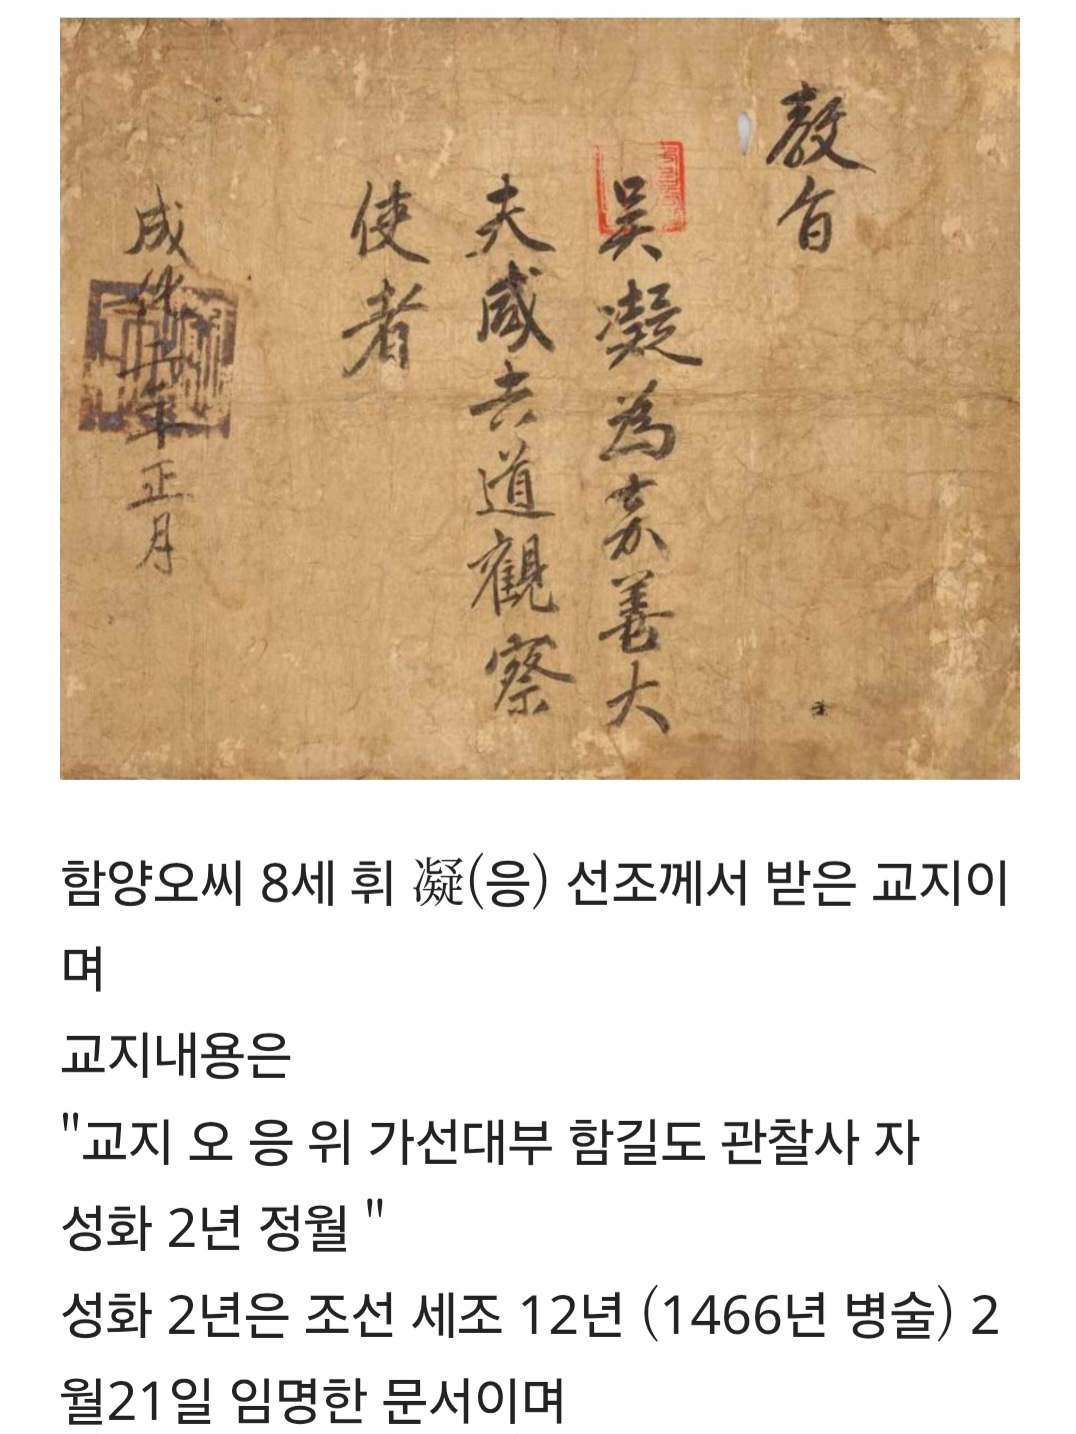 教旨
吳凝為嘉善大
夫咸吉道觀察
使者
成化二年正月
함양오씨 8세 휘 凝(응) 선조께서 받은 교지이
며
교지내용은
"교지 오 응 위 가선대부 함길도 관찰사 자
성화 2년 정월 "
성화 2년은 조선 세조 12년 (1466년 병술) 2
월21일 임명한 문서이며